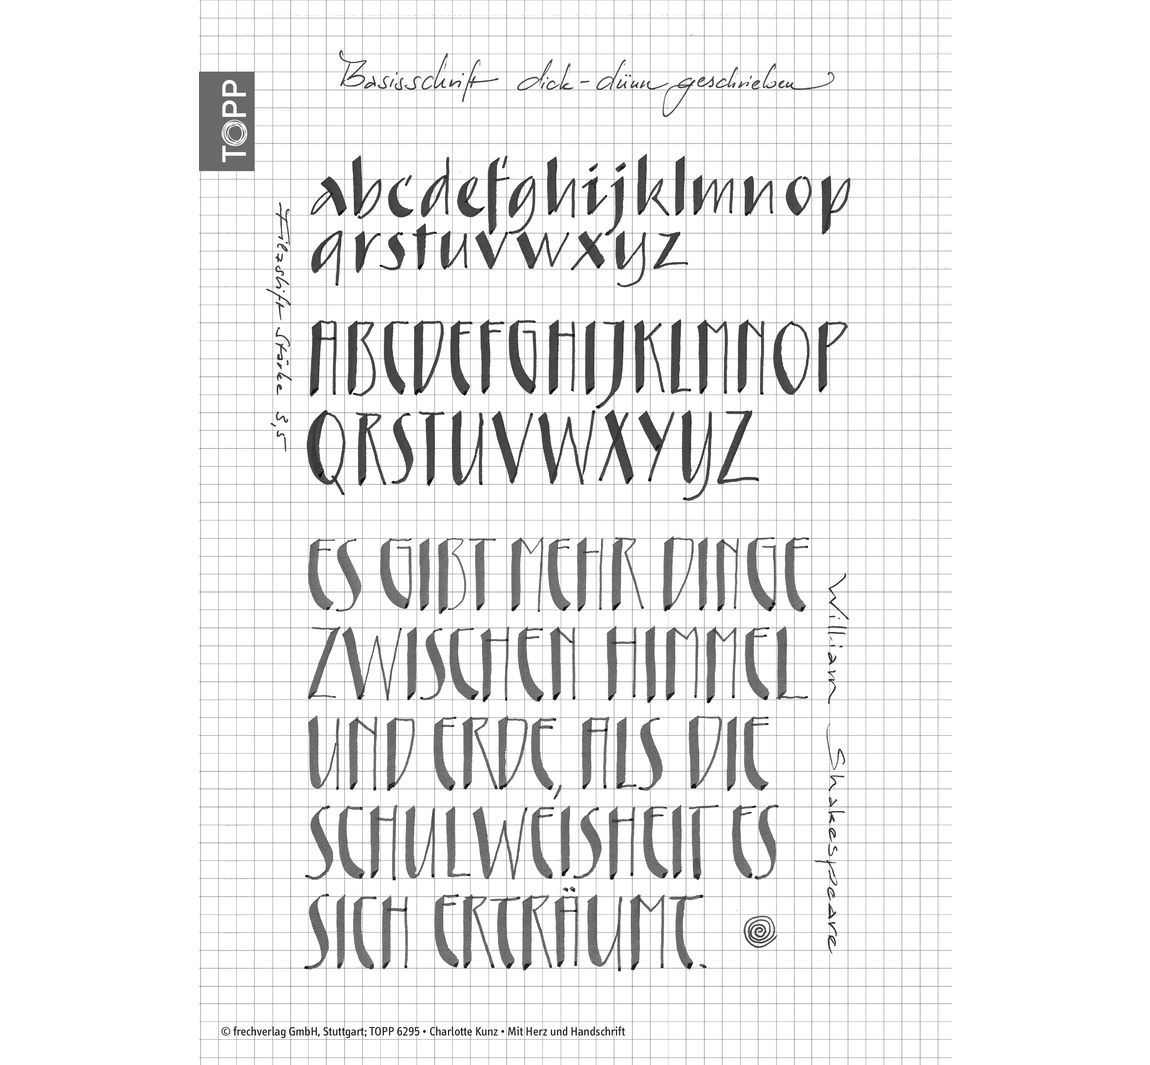 Basisschrift dick-dünn geschrieben
TOPP
abcdefghijklmnop
qrstuvwxyz
Filzstift Stärke 3,5
ABCDEFGHIJKLMNOP
QRSTUVWXYYZ
ES GIBT MEHR DINGE
ZWISCHEN HIMMEL
UND ERDE, ALS DIE
SCHULWEISHEIT ES
SICH ERTRÄUMT.
William Shakespeare
© frechverlag GmbH, Stuttgart; TOPP 6295 • Charlotte Kunz • Mit Herz und Handschrift